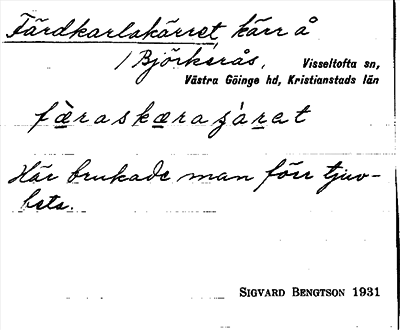 Färdkarlskärret, kärr å
/ Björkerås, Visseltofta sn,
Västra Göinge hd, Kristianstads län
Här brukade man förr tjuv-
beta.
SIGVARD BENGTSON 1931